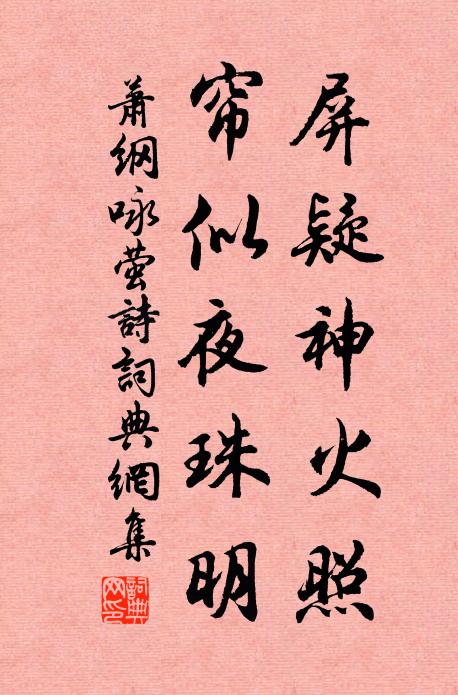 屏疑神火照
帘似夜珠明
萧纲咏萤詩詞典網集
詞典網印